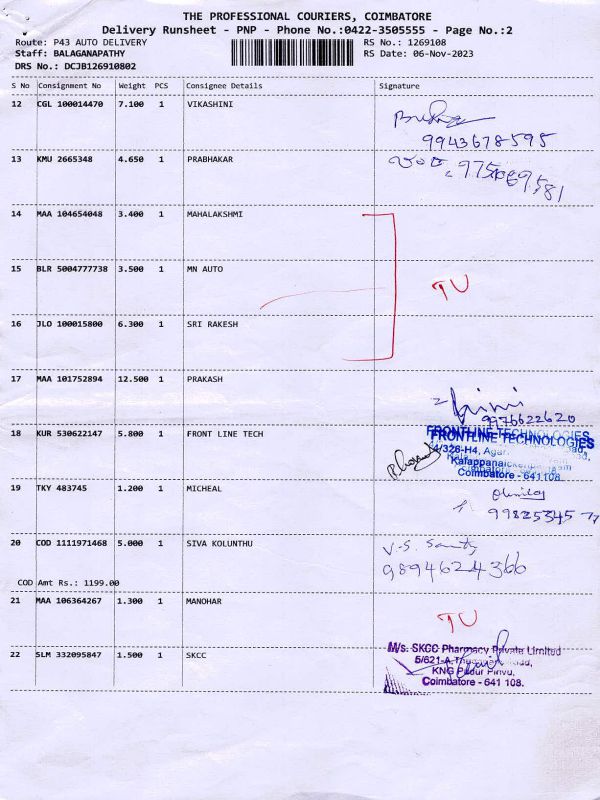 THE PROFESSIONAL COURIERS, COIMBATORE
Delivery Runsheet - PNP - Phone No.:0422-3505555 - Page No.:2
Route: P43 AUTO DELIVERY
RS No.: 1269108
Staff: BALAGANAPATHY
RS Date: 06-Nov-2023
DRS No.: DCJB126910802
S No Consignment No Weight PCS Consignee Details Signature
12 CGL 100014470 7.100 1 VIKASHINI
9943678595
13 KMU 2665348 4.650 1 PRABHAKAR
14 MAA 104654048 3.400 1 MAHALAKSHMI
15 BLR 5004777738 3.500 1 MN AUTO
TU
16 JLO 100015800 6.300 1 SRI RAKESH
17 MAA 101752894 12.500 1 PRAKASH
9976622620
18 KUR 530622147 5.800 1 FRONT LINE TECH
FRONTLINE TECHNOLOGIES
4/326-H4, Agar
Kalappanaicken
Coimbatore - 641108.
19 TKY 483745 1.200 1 MICHEAL
20 COD 1111971468 5.000 1 SIVA KOLUNTHU
V.S.
9894624366
COD Amt Rs.: 1199.00
21 MAA 106364267 1.300 1 MANOHAR
TU
22 SLM 332095847 1.500 1 SKCC
M/s. SKCC Pharmacy Private Limited
5/621-A, Road,
KNG Pudur Pirivu,
Coimbatore - 641 108.